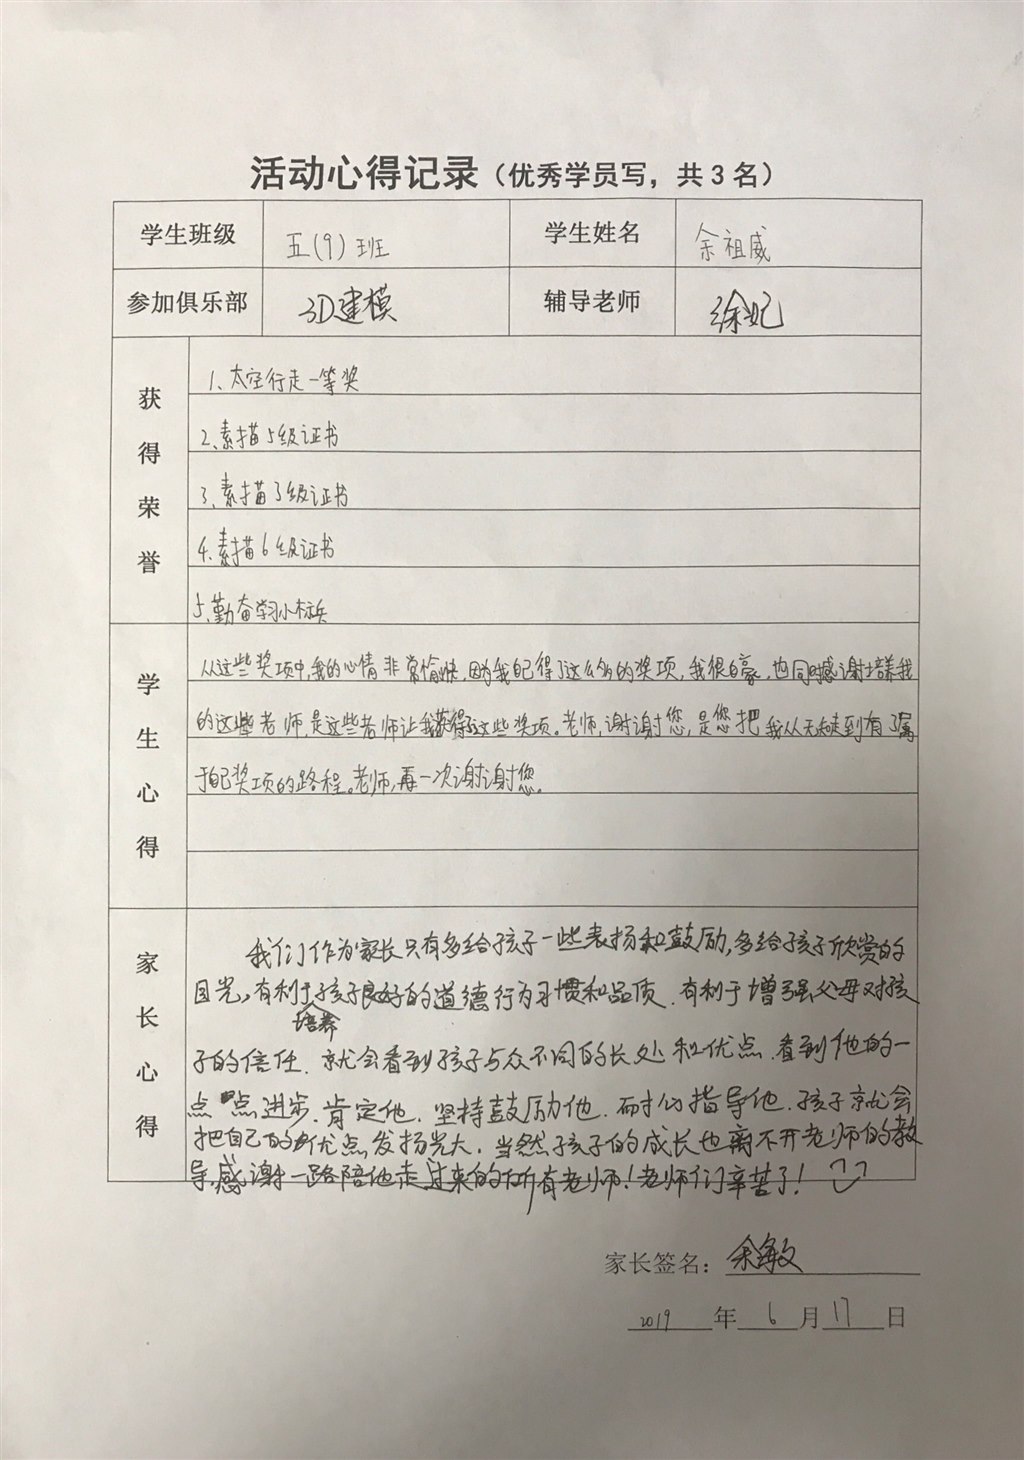 活动心得记录（优秀学员写，共3名）
学生班级 五(9)班 学生姓名 余祖威
参加俱乐部 3D建模 辅导老师 徐妃
获得荣誉
1、太空行走一等奖
2、素描5级证书
3、素描3级证书
4、素描6级证书
5、勤奋学习小标兵
学生心得
从这些奖项中,我的心情非常愉快,因为我自己得了这么多的奖项,我很自豪,也同时感谢培养我
的这些老师,是这些老师让我获得了这些奖项。老师,谢谢您,是您把我从无走到有了属
于自己奖项的路程。老师,再一次谢谢您。
家长心得
我们作为家长只有多给孩子一些表扬和鼓励,多给孩子欣赏的
目光,有利于培养孩子良好的道德行为习惯和品质.有利于增强父母对孩
子的信任.就会看到孩子与众不同的长处和优点.看到他的一
点点进步.肯定他.坚持鼓励他.耐心指导他.孩子就会
把自己的优点发扬光大.当然孩子的成长也离不开老师的教
导,感谢一路陪他走过来的所有老师!老师们辛苦了!
家长签名：余敏
2019年6月17日